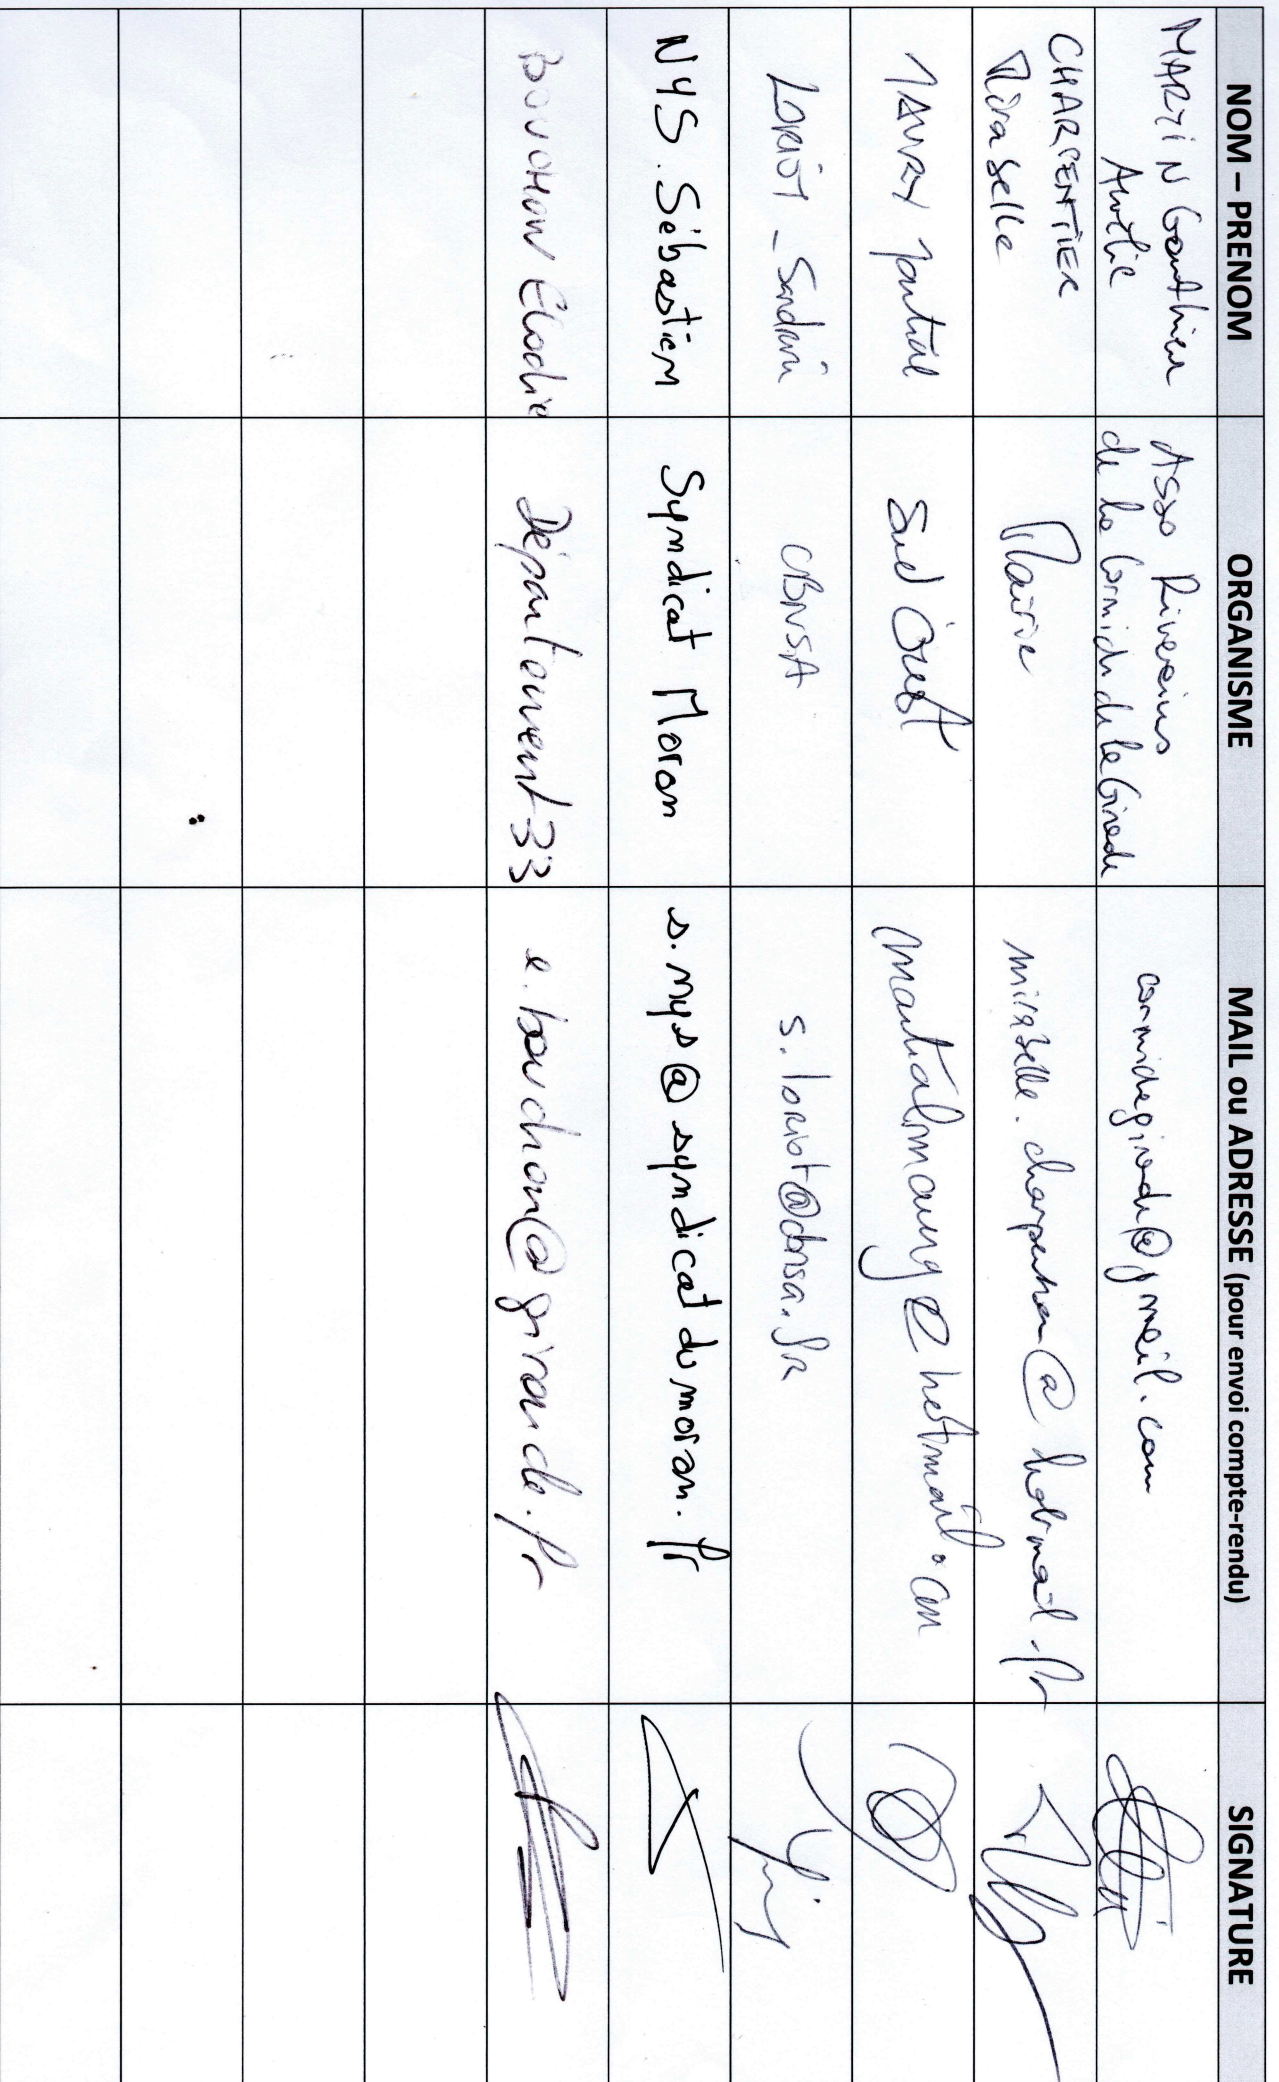 NOM – PRENOM ORGANISME MAIL ou ADRESSE (pour envoi compte-rendu) SIGNATURE
MARTIN Gonthier
Aurélie
Asso Riverains
de la Corniche de la Gironde
CHARPENTIER
Miraselle
Mairie
miraselle.charpentier@hotmail.fr
MAURY Martial
Sud Ouest
martialmaury@hotmail.com
LORIOT - Sandrine
CBNSA
s.loriot@cbnsa.fr
NYS. Sébastien
Syndicat Moron
s.nys@syndicatdumoron.fr
BOUCHON Elodie
Département 33
e.bouchon@gironde.fr